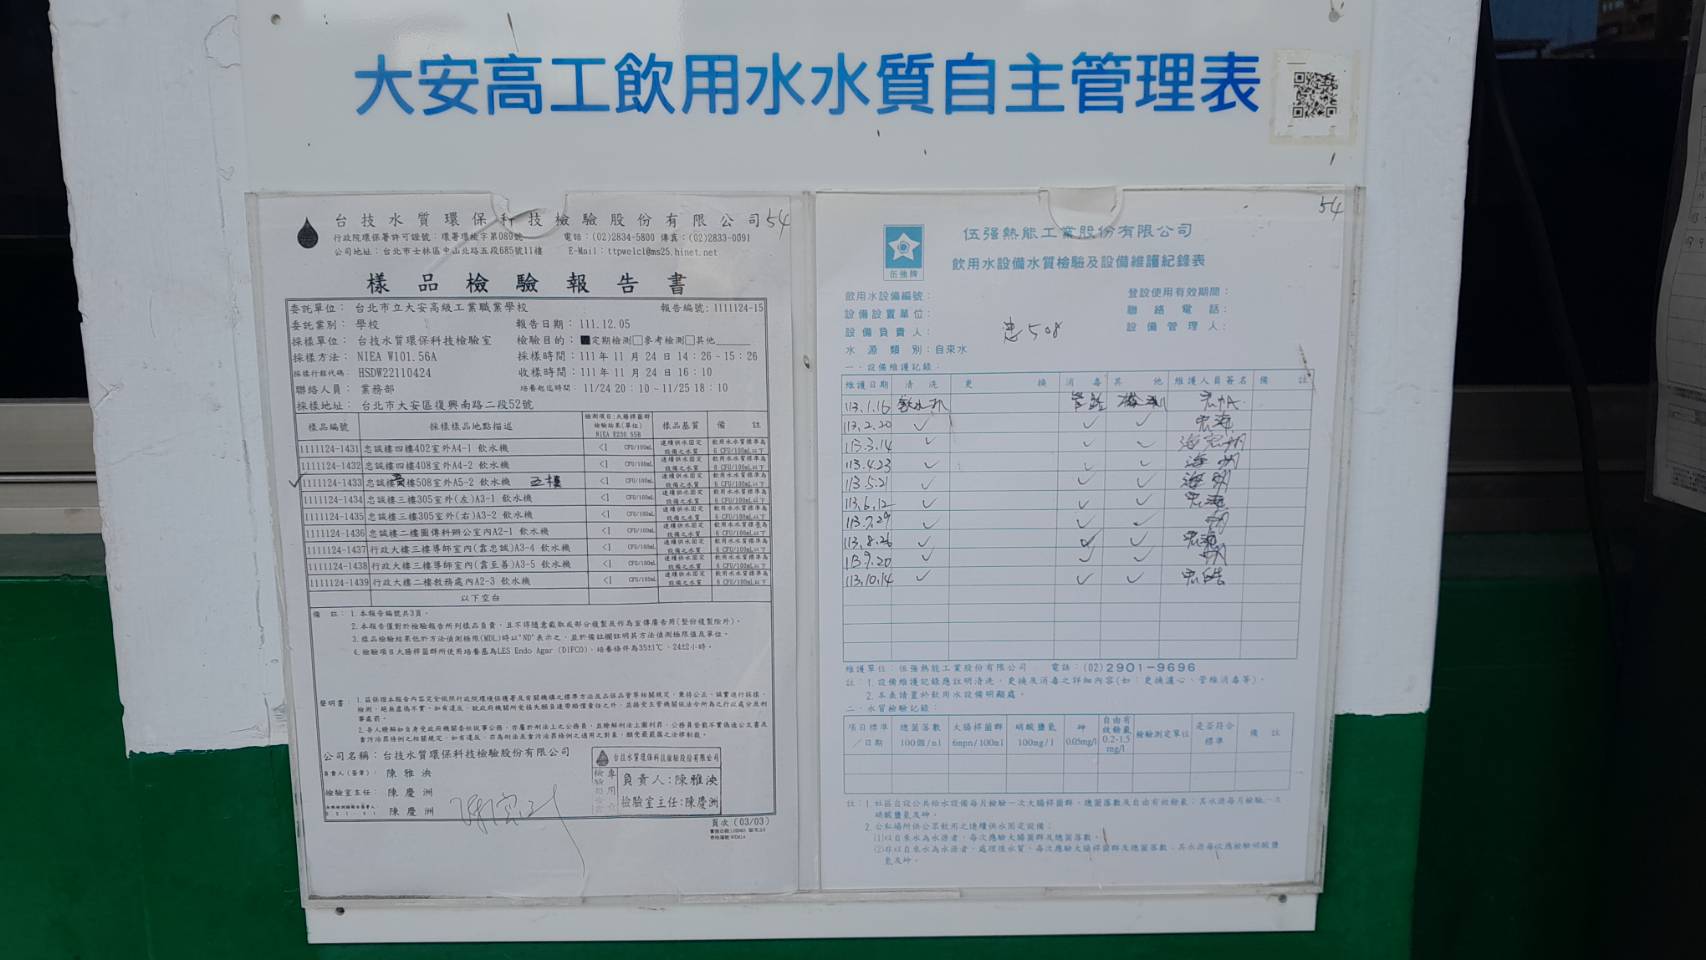 大安高工飲用水水質自主管理表
台技水質環保科技檢驗股份有限公司 54
行政院環保署許可證號：環署環檢字第089號 電話：(02)2834-5800 傳真：(02)2833-0091
公司地址：台北市士林區中山北路五段685號11樓 E-Mail：ttpwelcl@ms25.hinet.net
樣品檢驗報告書
委託單位：台北市立大安高級工業職業學校 報告編號：1111124-15
委託業別：學校 報告日期：111.12.05
採樣單位：台技水質環保科技檢驗室 檢驗目的：■定期檢測□參考檢測□其他
採樣方法：NIEA W101.56A 採樣時間：111年11月24日14：26-15：26
採樣行程代碼：HSDW22110424 收樣時間：111年11月24日16：10
聯絡人員：業務部 培養起迄時間：11/24 20：10～11/25 18：10
採樣地址：台北市大安區復興南路二段52號
樣品編號 採樣樣品地點描述 檢測項目:大腸桿菌群 檢驗結果(單位) NIEA E230.55B 樣品基質 備註
1111124-1431 忠誠樓四樓402室外A4-1 飲水機 <1 CFU/100mL 連續供水固定設備之水質 飲用水水質標準為6 CFU/100mL以下
1111124-1432 忠誠樓四樓408室外A4-2 飲水機 <1 CFU/100mL 連續供水固定設備之水質 飲用水水質標準為6 CFU/100mL以下
✓ 1111124-1433 忠誠樓樓508室外A5-2 飲水機 五樓 <1 CFU/100mL 連續供水固定設備之水質 飲用水水質標準為6 CFU/100mL以下
1111124-1434 忠誠樓三樓305室外(左)A3-1 飲水機 <1 CFU/100mL 連續供水固定設備之水質 飲用水水質標準為6 CFU/100mL以下
1111124-1435 忠誠樓三樓305室外(右)A3-2 飲水機 <1 CFU/100mL 連續供水固定設備之水質 飲用水水質標準為6 CFU/100mL以下
1111124-1436 忠誠樓二樓圖傳科辦公室內A2-1 飲水機 <1 CFU/100mL 連續供水固定設備之水質 飲用水水質標準為6 CFU/100mL以下
1111124-1437 行政大樓三樓導師室內(靠忠誠)A3-4 飲水機 <1 CFU/100mL 連續供水固定設備之水質 飲用水水質標準為6 CFU/100mL以下
1111124-1438 行政大樓三樓導師室內(靠至善)A3-5 飲水機 <1 CFU/100mL 連續供水固定設備之水質 飲用水水質標準為6 CFU/100mL以下
1111124-1439 行政大樓二樓教務處內A2-3 飲水機 <1 CFU/100mL 連續供水固定設備之水質 飲用水水質標準為6 CFU/100mL以下
以下空白
備註：1.本報告編號共3頁。
2.本報告僅對於檢驗報告所列樣品負責，且不得隨意截取或部分複製及作為宣傳廣告用(整份複製除外)。
3.樣品檢驗結果低於方法偵測極限(MDL)時以"ND"表示之，並於備註欄註明其方法偵測極限值及單位。
4.檢驗項目大腸桿菌群所使用培養基為LES Endo Agar (DIFCO)、培養條件為35±1℃、24±2小時。
公司名稱：台技水質環保科技檢驗股份有限公司
負責人(簽章)：陳雅泱
檢驗室主任：陳慶洲
陳慶洲
台技水質環保科技檢驗股份有限公司
負責人：陳雅泱
檢驗室主任:陳慶洲
頁次(03/03)
54
伍強牌
伍強熱能工業股份有限公司
飲用水設備水質檢驗及設備維護紀錄表
飲用水設備編號： 登設使用有效期間：
設備設置單位： 聯絡電話：
設備負責人： 忠508 設備管理人：
水源類別：自來水
一．設備維護記錄：
維護日期 清洗 更換 消毒 其他 維護人員簽名 備註
113.1.16 飲水機 檢測
113.2.20 ✓ ✓ ✓
113.3.14 ✓ ✓ ✓
113.4.23 ✓ ✓ ✓
113.5.21 ✓ ✓ ✓
113.6.12 ✓ ✓ ✓
113.7.29 ✓ ✓ ✓
113.8.26 ✓ ✓ ✓
113.9.20 ✓ ✓ ✓
113.10.14 ✓ ✓ ✓
維護單位：伍強熱能工業股份有限公司 電話：(02)2901-9696
註：1.設備維護記錄應註明清洗、更換及消毒之詳細內容(如：更換濾心、管維消毒等)。
2.本表請置於飲用水設備明顯處。
二．水質檢驗記錄：
項目標準／日期 總菌落數 100個/ml 大腸桿菌群 6mpn/100ml 硝酸鹽氮 100mg/l 砷 0.05mg/l 自由有效餘氯 0.2-1.5 mg/l 檢驗測定單位 是否符合標準 備註
註：1.社區自設公共給水設備每月檢驗一次大腸桿菌群、總菌落數及自由有效餘氯；其水源每月檢驗一次硝酸鹽氮及砷。
2.公私場所供公眾飲用之連續供水固定設備：
(1)以自來水為水源者，每次應驗大腸菌群及總菌落數。
(2)非以自來水為水源者，處理後水質，每次應驗大腸桿菌群及總菌落數；其水源每次應檢驗硝酸鹽氮及砷。